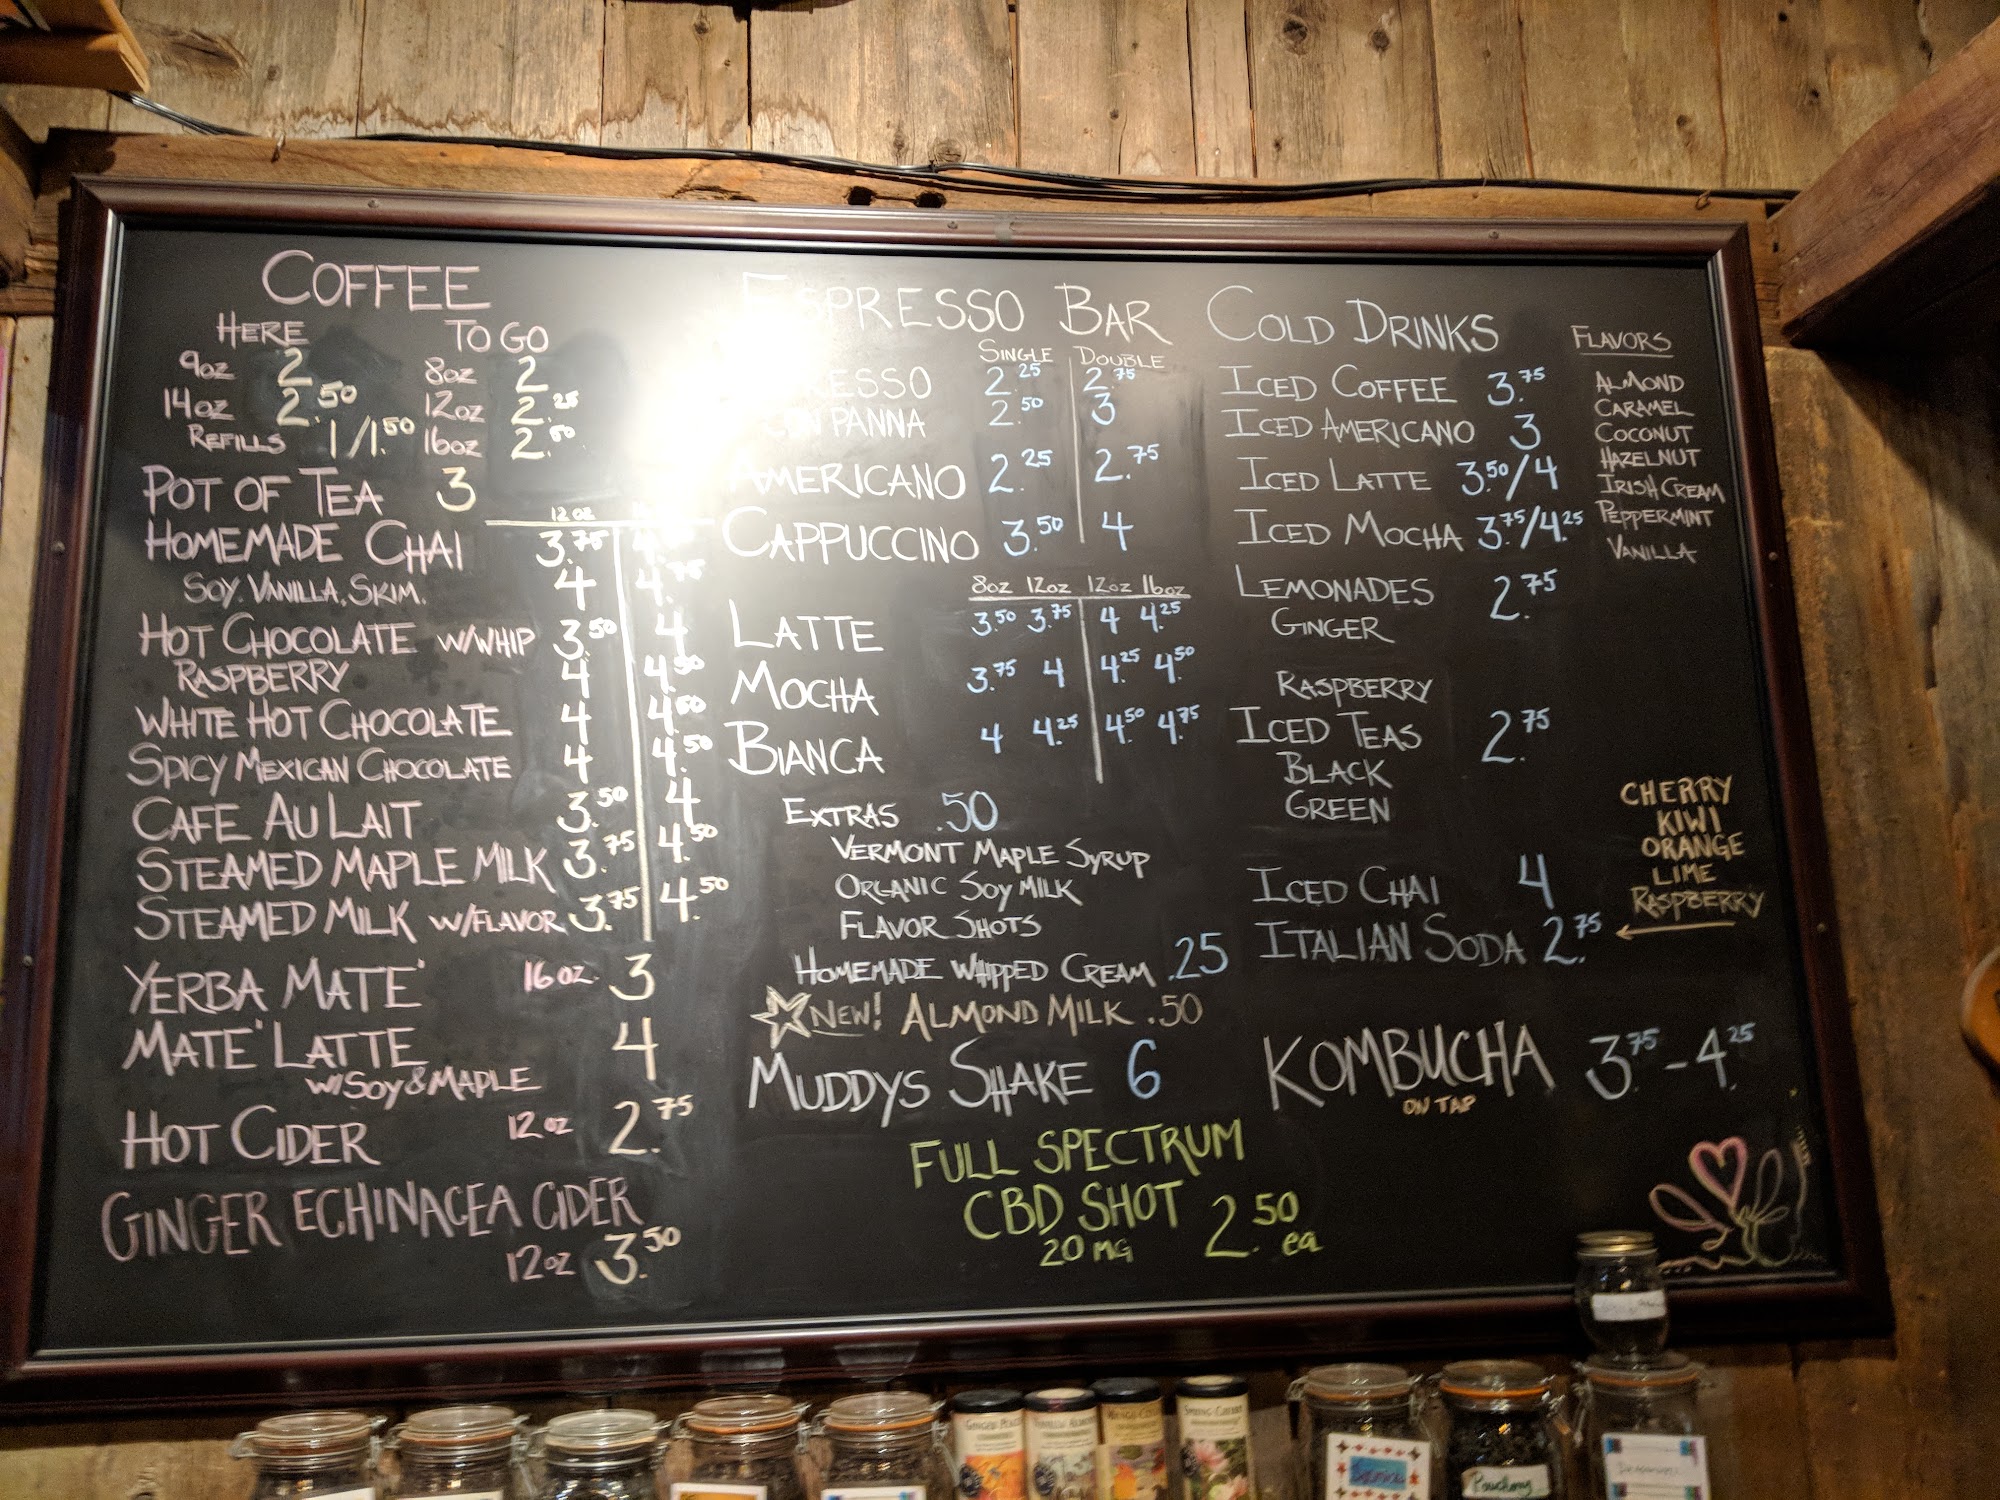 COFFEE
HERE TO GO
9oz 2 8oz 2
14oz 2.50 12oz 2.25
REFILLS 1/1.50 16oz 2.50
POT OF TEA 3
12 oz
HOMEMADE CHAI 3.75
SOY, VANILLA, SKIM. 4 4.75
HOT CHOCOLATE W/WHIP 3.50 4
RASPBERRY 4 4.50
WHITE HOT CHOCOLATE 4 4.50
SPICY MEXICAN CHOCOLATE 4 4.50
CAFE AU LAIT 3.50 4
STEAMED MAPLE MILK 3.75 4.50
STEAMED MILK W/FLAVOR 3.75 4.50
YERBA MATE' 16 oz. 3
MATE' LATTE 4
W/SOY & MAPLE
HOT CIDER 12oz 2.75
GINGER ECHINACEA CIDER
12oz 3.50
ESPRESSO BAR
SINGLE DOUBLE
ESPRESSO 2.25 2.75
CON PANNA 2.50 3
AMERICANO 2.25 2.75
CAPPUCCINO 3.50 4
8oz 12oz 12oz 16oz
LATTE 3.50 3.75 4 4.25
MOCHA 3.75 4 4.25 4.50
BIANCA 4 4.25 4.50 4.75
EXTRAS .50
VERMONT MAPLE SYRUP
ORGANIC SOY MILK
FLAVOR SHOTS
HOMEMADE WHIPPED CREAM .25
NEW! ALMOND MILK .50
MUDDYS SHAKE 6
FULL SPECTRUM
CBD SHOT 2.50 ea
20 MG
COLD DRINKS
ICED COFFEE 3.75
ICED AMERICANO 3
ICED LATTE 3.50/4
ICED MOCHA 3.75/4.25
LEMONADES 2.75
GINGER
RASPBERRY
ICED TEAS 2.75
BLACK
GREEN
ICED CHAI 4
ITALIAN SODA 2.75
KOMBUCHA 3.75 - 4.25
ON TAP
FLAVORS
ALMOND
CARAMEL
COCONUT
HAZELNUT
IRISH CREAM
PEPPERMINT
VANILLA
CHERRY
KIWI
ORANGE
LIME
RASPBERRY